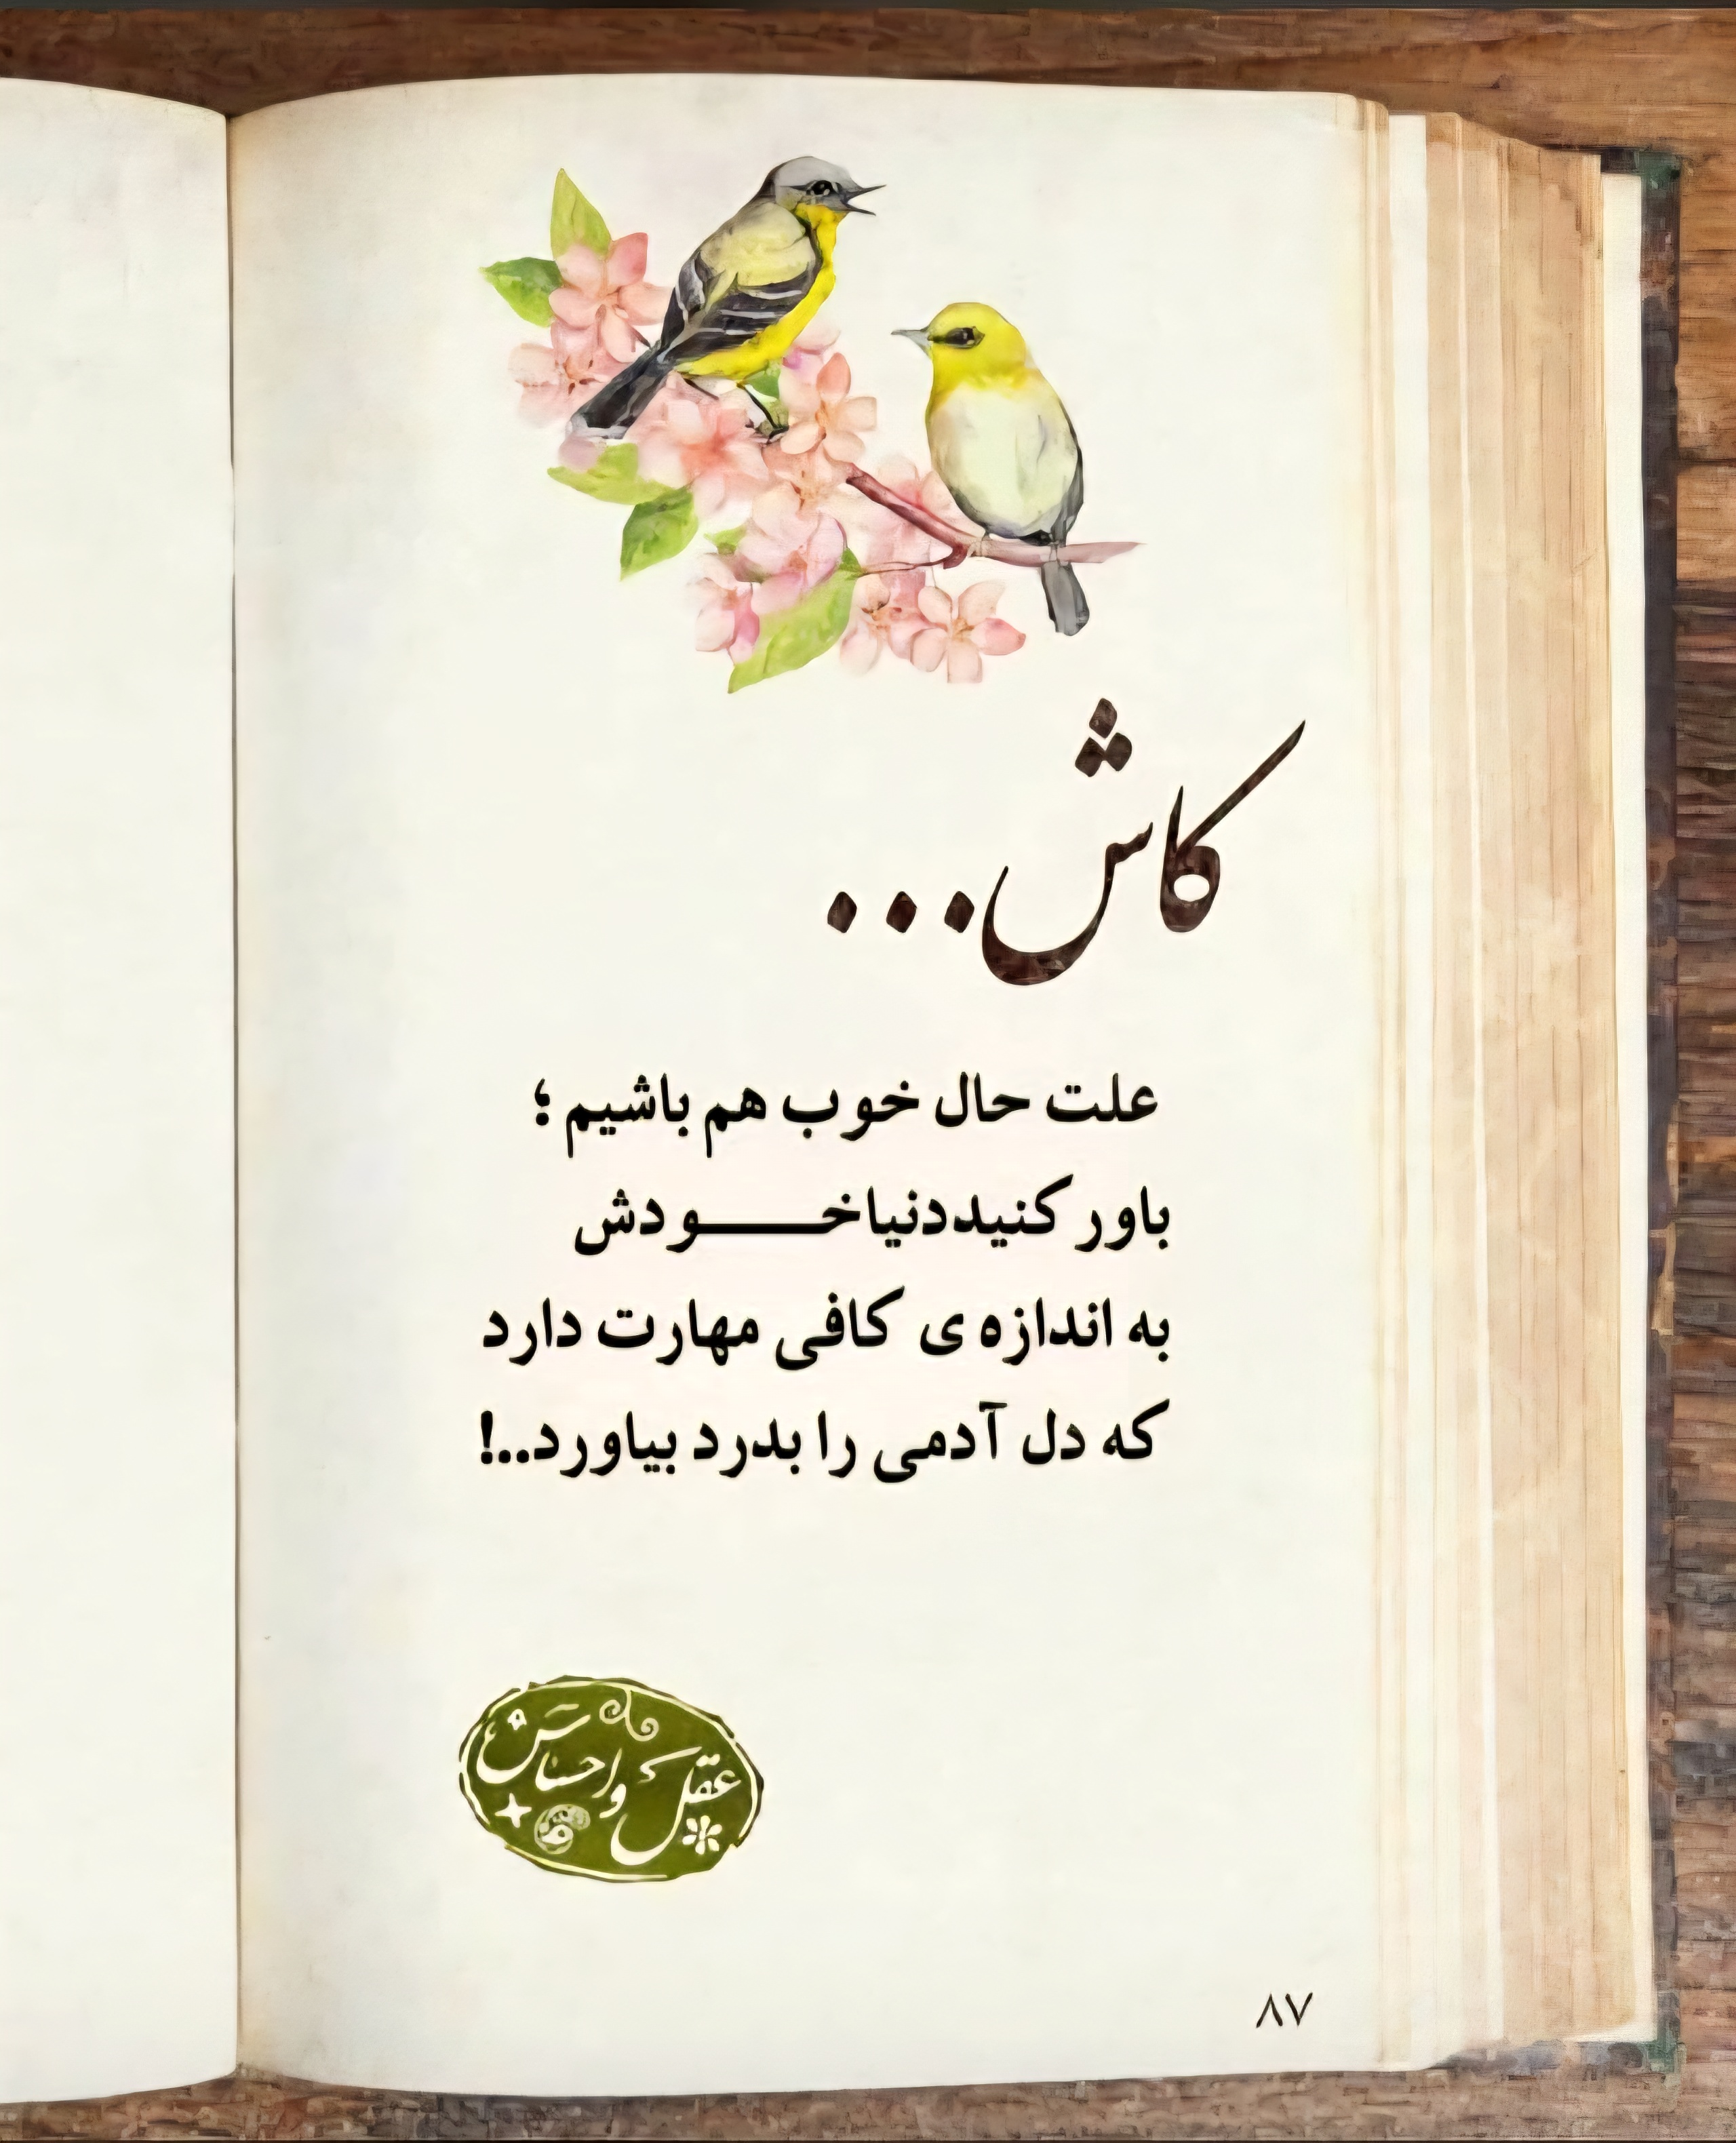 کاش...
علت حال خوب هم باشیم؛
باور کنیددنیاخـــــودش
به اندازه ی کافی مهارت دارد
که دل آدمی را بدرد بیاورد..!
عقل و احساس
۸۷